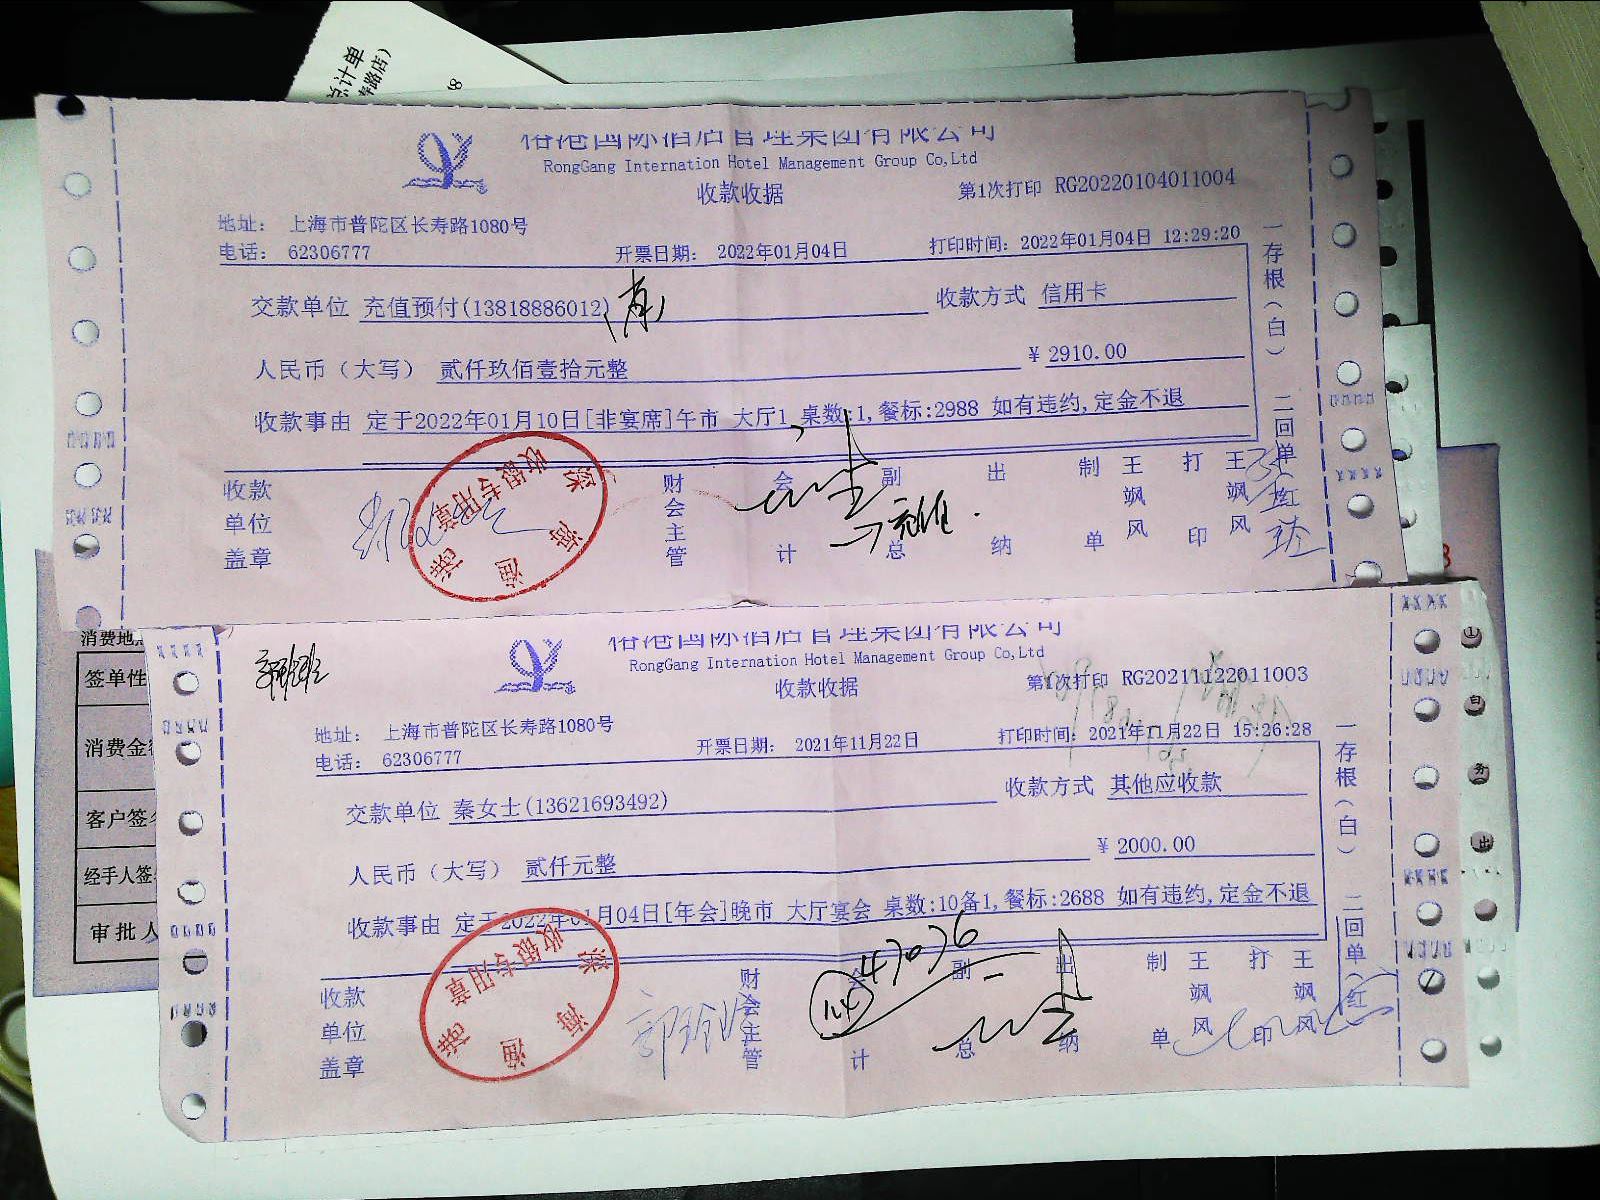 总计单
寿路店）
8
国际酒店管理集团有限公司
RongGang Internation Hotel Management Group Co,Ltd
收款收据
第1次打印 RG20220104011004
地址： 上海市普陀区长寿路1080号
电话： 62306777
开票日期： 2022年01月04日
打印时间：2022年01月04日 12:29:20
交款单位 充值预付(13818886012)
收款方式 信用卡
人民币（大写） 贰仟玖佰壹拾元整
￥ 2910.00
收款事由 定于2022年01月10日[非宴席]午市 大厅1，桌数:1,餐标:2988 如有违约,定金不退
收款单位盖章
财会主管
会计
副总
出纳
制单
王飒风
打印
王飒风
一存根（白） 二回单（红）
收银专用章
国际酒店管理集团有限公司
RongGang Internation Hotel Management Group Co,Ltd
收款收据
第1次打印 RG20211122011003
地址： 上海市普陀区长寿路1080号
电话： 62306777
开票日期： 2021年11月22日
打印时间：2021年11月22日 15:26:28
交款单位 秦女士(13621693492)
收款方式 其他应收款
人民币（大写） 贰仟元整
￥ 2000.00
收款事由 定于2022年01月04日[年会]晚市 大厅宴会 桌数:10备1,餐标:2688 如有违约,定金不退
收款单位盖章
财会主管
会计
副总
出纳
制单
王飒风
打印
王飒风
一存根（白） 二回单（红）
收银专用章
47076
消费地
签单性
消费金
客户签
经手人签
审批人